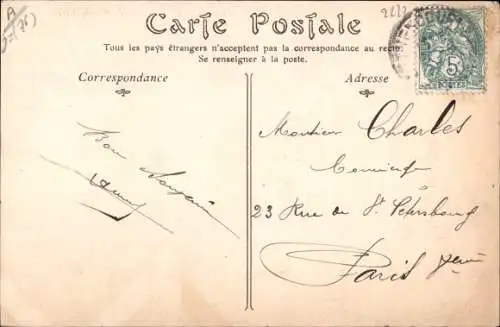 A
Carte Postale
Tous les pays étrangers n'acceptent pas la correspondance au recto.
Se renseigner à la poste.
Correspondance
Adresse
5c
Bon
Monsieur Charles
Concierge
23 Rue de St Petersbourg
Paris